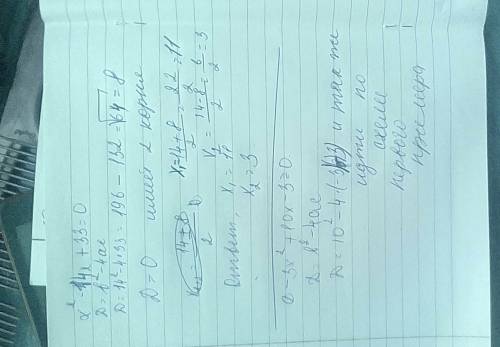 x² - 14x + 33 = 0
D = b² - 4ac
D = 14² - 4·33 = 196 - 132 = √64 = 8
D = 0 имеет 2 корня
x₁ = 14+8/2 = 22/2 = 11
x₂ = 14-8/2 = 6/2 = 3
Ответ, x₁ = 11
x₂ = 3
-3x² + 10x - 3 = 0
D = b² - 4ac
D = 10² - 4·(-3)(-3) и так же
идти по
схеме
первого
примера